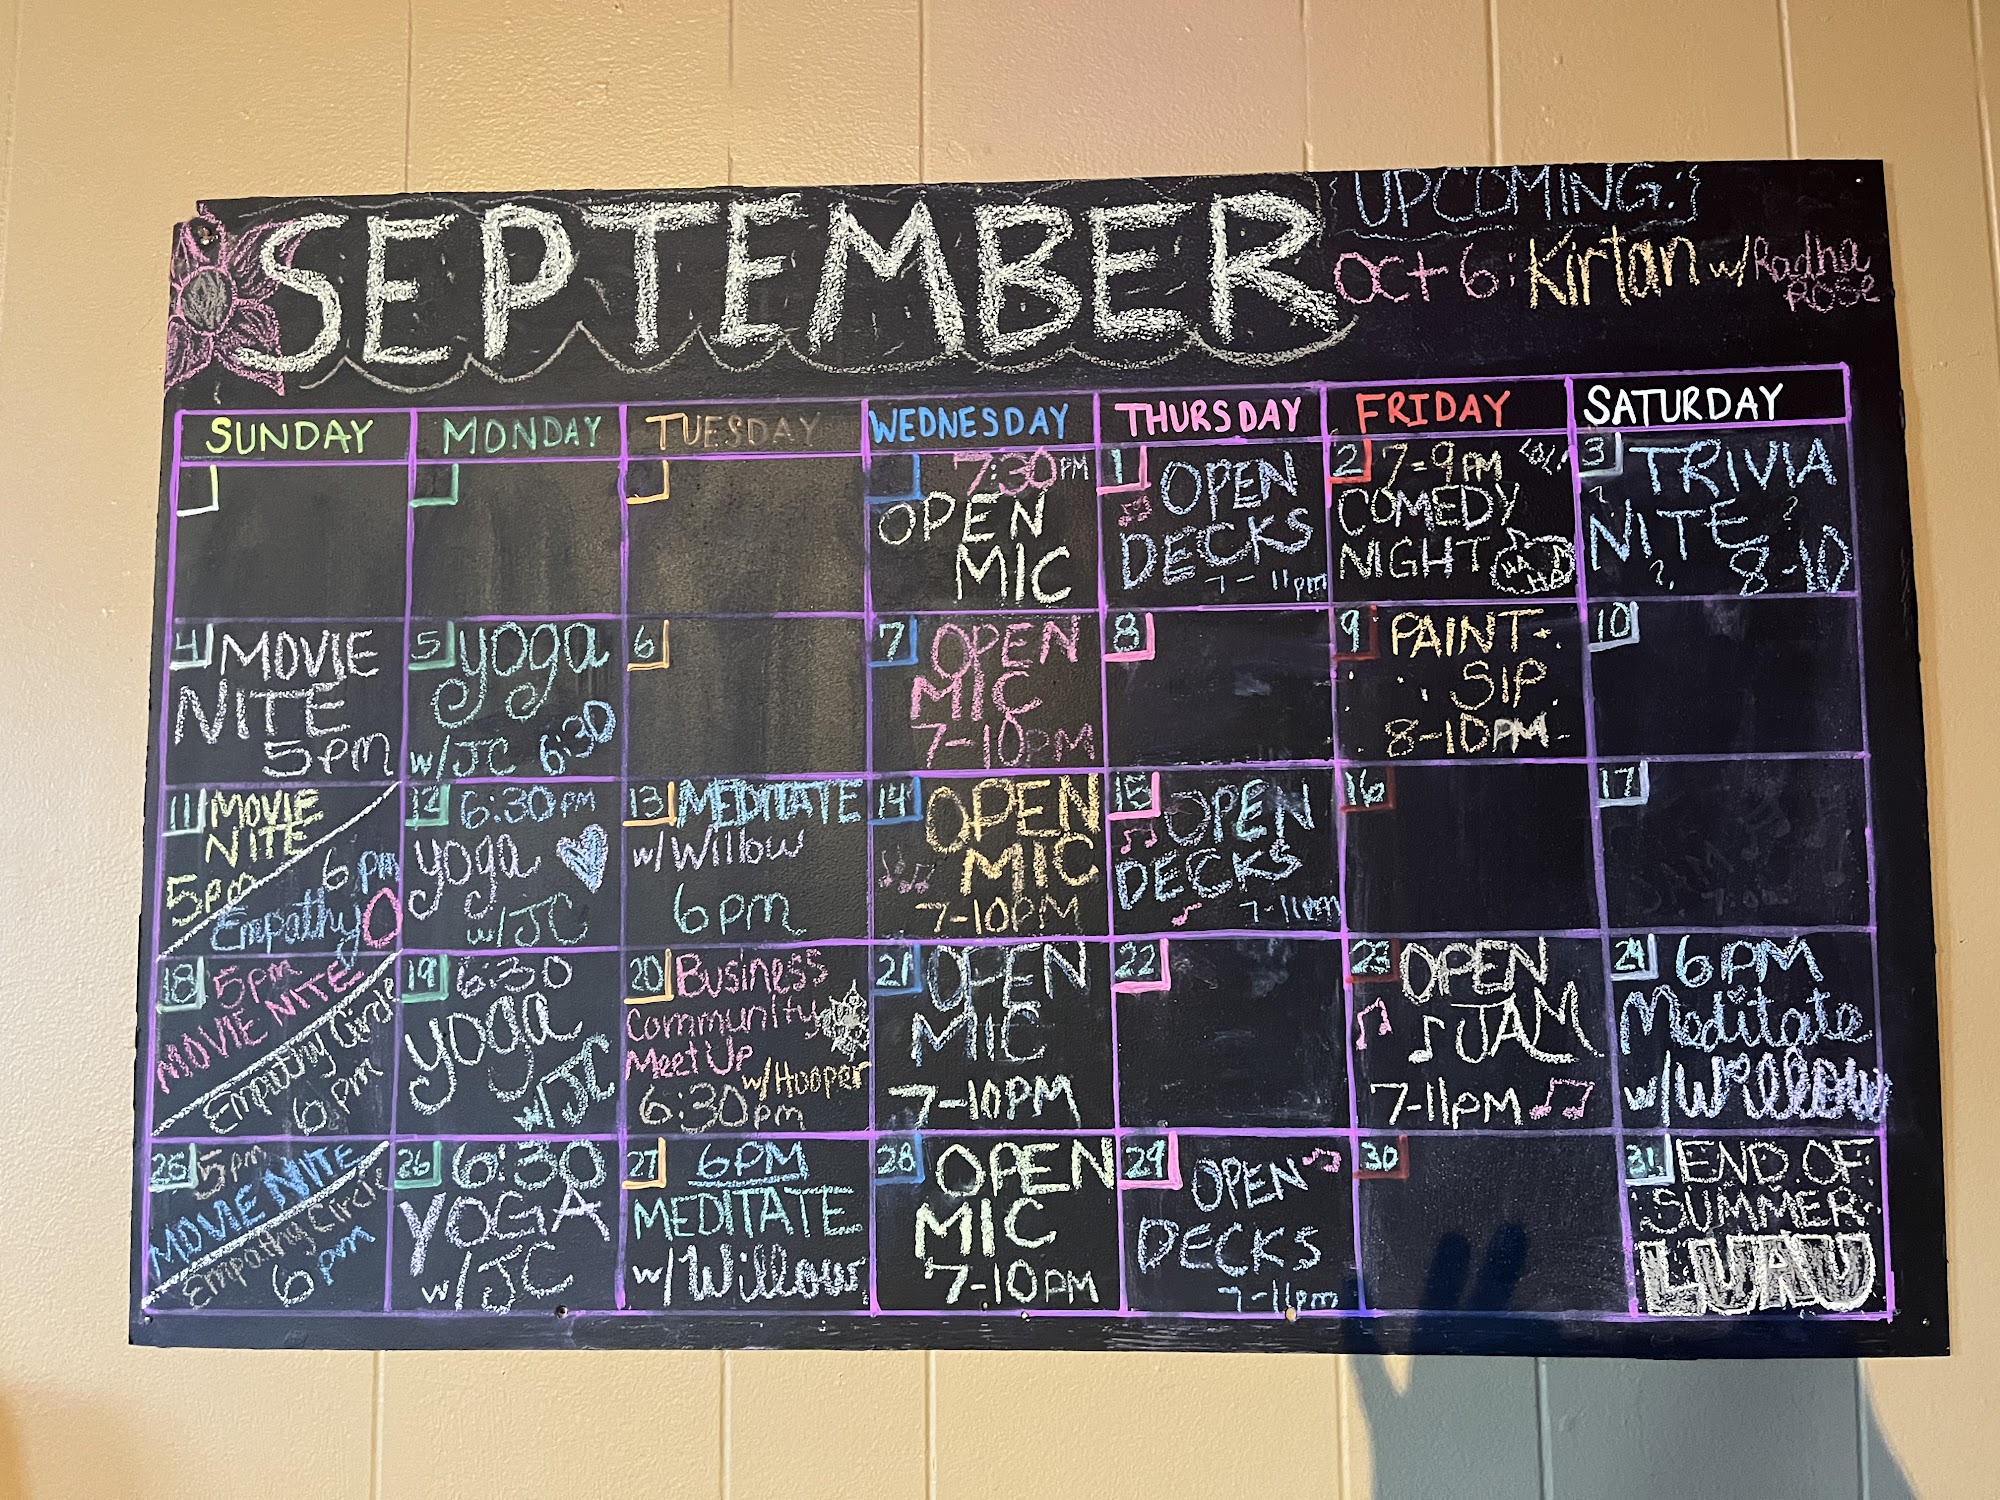 SEPTEMBER
UPCOMING:
OCT 6: Kirtan w/Radha
Rose
SUNDAY MONDAY TUESDAY WEDNESDAY THURSDAY FRIDAY SATURDAY
7:30PM
OPEN
MIC
1 OPEN
DECKS
7-11pm
2 7-9PM LOL!
COMEDY
NIGHT
HA HA HA
3 TRIVIA
? NITE ?
? 8-10
4 MOVIE
NITE
5pm
5 yoga
w/JC 6:30
6
7 OPEN
MIC
7-10PM
8
9 PAINT.
SIP
8-10PM
10
11 MOVIE
NITE
5pm
6pm
Empathy O
12 6:30PM
yoga
w/JC
13 MEDITATE
w/Willow
6pm
14 OPEN
MIC
7-10PM
15 OPEN
DECKS
7-11pm
16
17
18 5pm
MOVIE NITE
Empathy Circle
6pm
19 6:30
yoga
w/JC
20 Business
Community
Meet Up
w/Hooper
6:30pm
21 OPEN
MIC
7-10PM
22
23 OPEN
JAM
7-11PM
24 6PM
Meditate
w/Willow
25 5pm
MOVIE NITE
Empathy Circle
6pm
26 6:30
YOGA
w/JC
27 6PM
MEDITATE
w/Willow
28 OPEN
MIC
7-10PM
29 OPEN
DECKS
7-11pm
30
31 END OF
SUMMER
LUAU